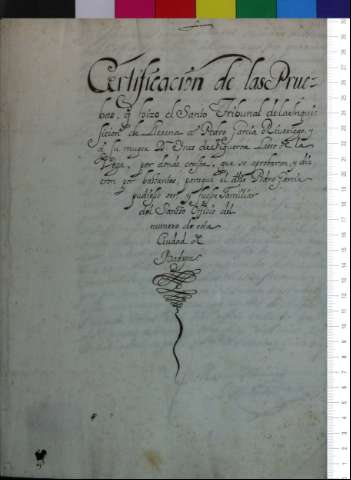 Certificación de las Prue-
bas, q hizo el Santo Tribunal de la Inqui
sicion de Llerena a Pedro Garcia
a su muger Dª Ines de Figueroa Laso de la
Vega, por donde consta, que se aprobaron, y die
ron por bastantes, porque el dho Pedro Garcia
pudiesse ser, y fuesse Familiar
del Santo Oficio del
numero de esta
Ciudad de
Badajoz